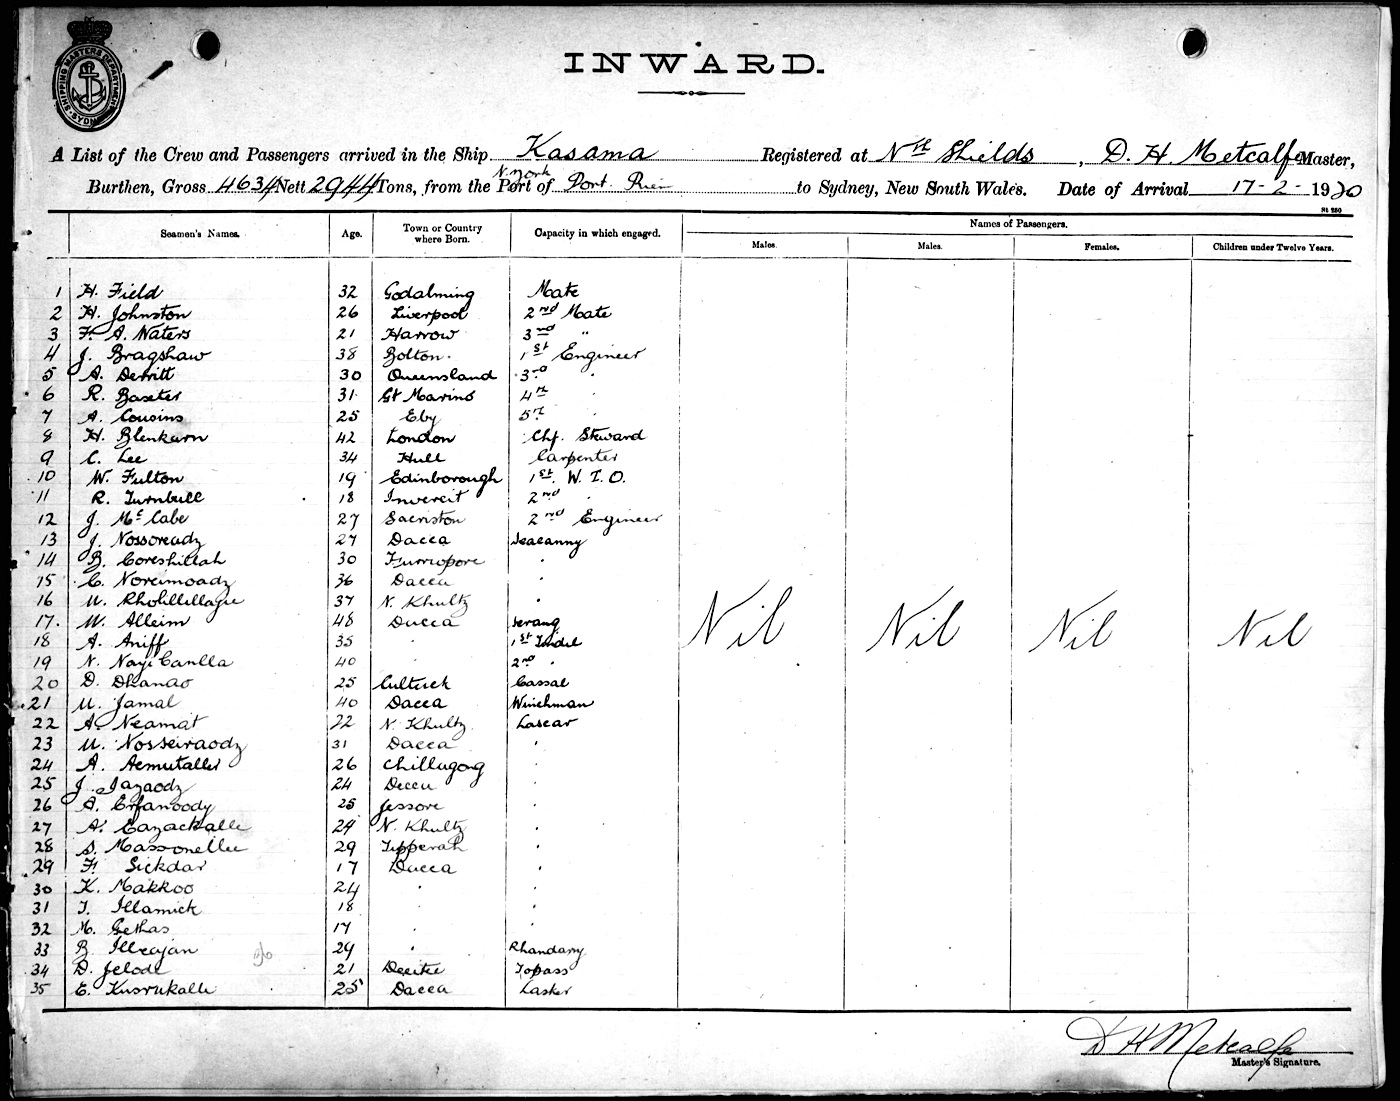 SHIPPING MASTERS DEPARTMENT SYDNEY
INWARD.
A List of the Crew and Passengers arrived in the Ship Kasama Registered at Nth Shields, D. H. Metcalfe Master,
Burthen, Gross 4634 Nett 2944 Tons, from the Port of N. York Port Pirie to Sydney, New South Wales. Date of Arrival 17-2-1920
St 280
Seamen's Names. Age. Town or Country where Born. Capacity in which engaged. Names of Passengers.
Males. Males. Females. Children under Twelve Years.
1 H. Field 32 Godalming Mate
2 H. Johnston 26 Liverpool 2nd Mate
3 F. A. Waters 21 Harrow 3rd "
4 J. Bragshaw 38 Bolton. 1st Engineer
5 A. Derritt 30 Queensland 3rd "
6 R. Baxter 31 4th "
7 A. Cousins 25 Eby 5th "
8 H. Blenkarn 42 London Chf. Steward
9 C. Lee 34 Hull Carpenter
10 W. Fulton 19 Edinborough 1st. W. T. O.
11 R. Turnbull 18 2nd "
12 J. McCabe 27 Sacriston 2nd Engineer
13 J. Nossoreadz 27 Dacca Seacanny
14 B. Coreshillah 30 "
15 C. Noreimoadz 36 Dacca "
16 U. 37 N. Khultz "
17. U. Alleim 48 Dacca Serang
18 A. Aniff 35 " 1st Tindel
19 N. Nayi Canlla 40 " 2nd "
20 D. Dhanao 25 Culturk Cassal
21 U. Jamal 40 Dacca Winchman
22 A. Neamat 22 N. Khultz Lascar
23 U. Nosseiraodz 31 Dacca "
24 A. Aemutaller 26 Chillugong "
25 J. Jazaodz 24 Decca "
26 A. Erfanoody 25 Jessore "
27 A. Eazackalle 24 N. Khultz "
28 S. Massonellee 29 Tipperah "
29 F. Sickdar 17 Dacca "
30 K. Makkoo 24 " "
31 I. Illamick 18 " "
32 M. Gethas 17 " "
33 B. Illeajan 29 " Bhandarry
34 D. Jelode 21 Topass
35 E. Kusrukalle 25 Dacca Lasker
Nil Nil Nil Nil
D H Metcalfe
Master's Signature.